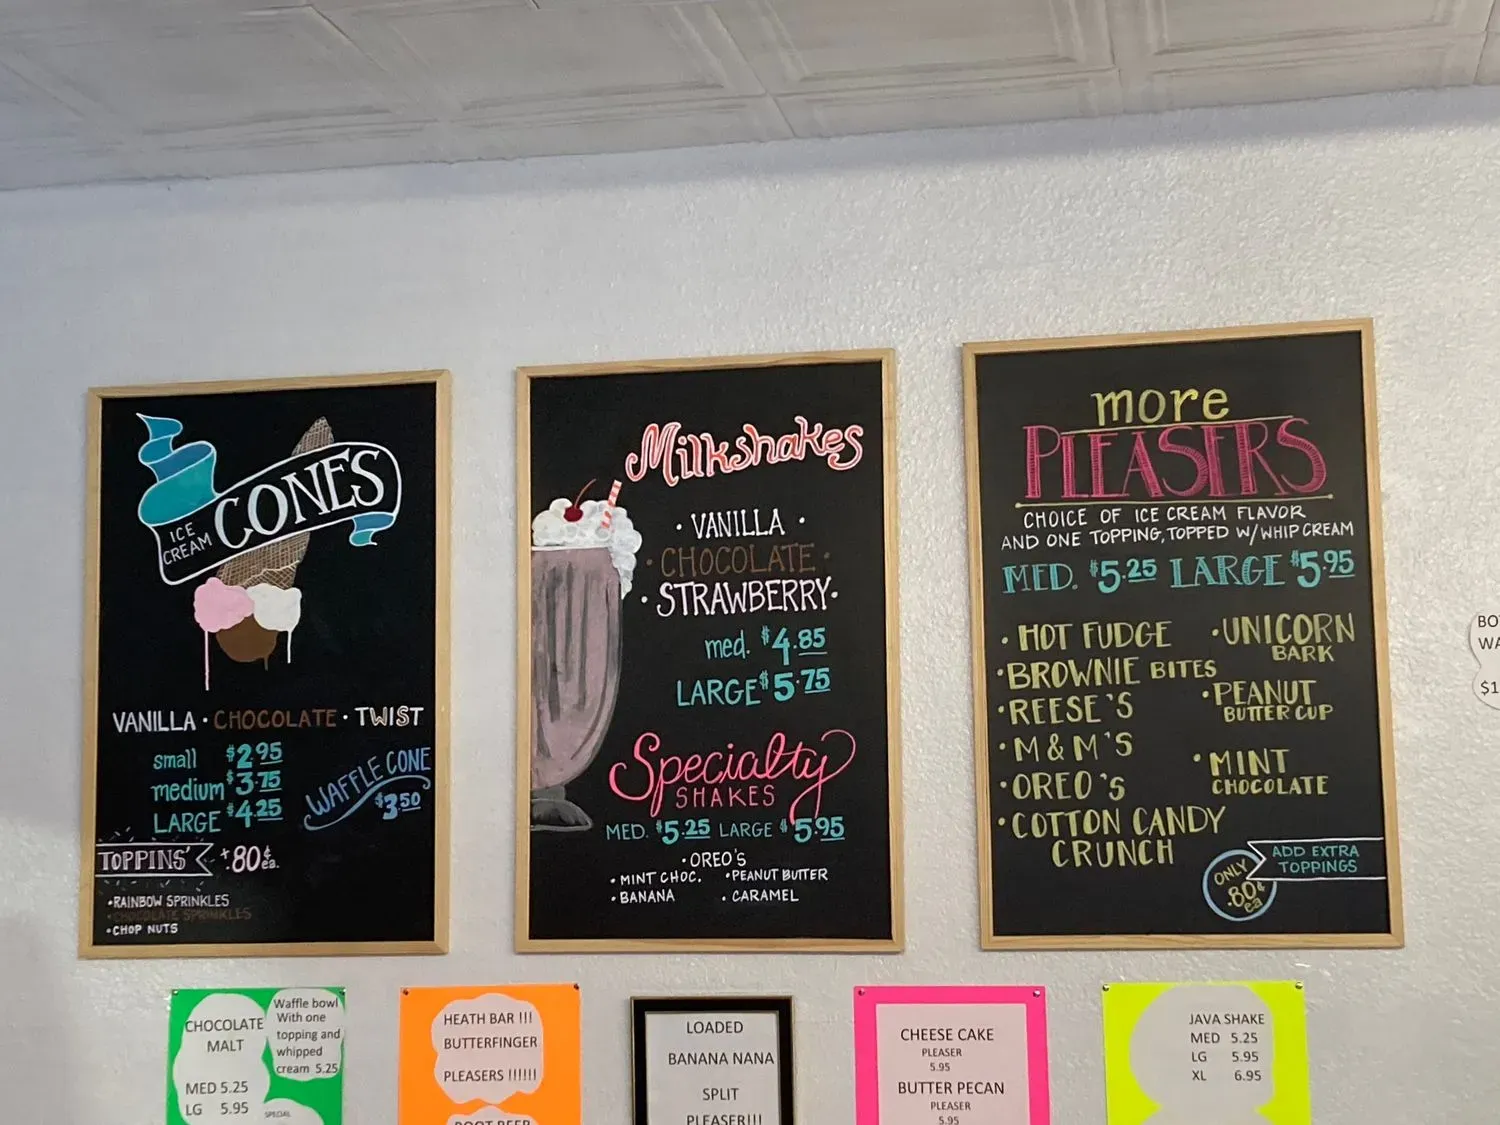 ICE
CREAM
CONES
VANILLA · CHOCOLATE · TWIST
small $2.95
medium $3.75
LARGE $4.25
WAFFLE CONE
$3.50
TOPPINS' +.80¢ ea.
•RAINBOW SPRINKLES
•CHOCOLATE SPRINKLES
•CHOP NUTS
Milkshakes
· VANILLA ·
· CHOCOLATE ·
· STRAWBERRY·
med. $4.85
LARGE $5.75
Specialty
SHAKES
MED. $5.25 LARGE $5.95
•OREO'S
• MINT CHOC. •PEANUT BUTTER
•BANANA • CARAMEL
more
PLEASERS
CHOICE OF ICE CREAM FLAVOR
AND ONE TOPPING, TOPPED W/ WHIP CREAM
MED. $5.25 LARGE $5.95
• HOT FUDGE
•BROWNIE BITES
•REESE'S
•M&M'S
•OREO'S
•COTTON CANDY
CRUNCH
•UNICORN
BARK
•PEANUT
BUTTER CUP
•MINT
CHOCOLATE
ONLY
.80¢
ea
ADD EXTRA
TOPPINGS
CHOCOLATE
MALT
MED 5.25
LG 5.95
Waffle bowl
With one
topping and
whipped
cream 5.25
SPECIAL
HEATH BAR !!!
BUTTERFINGER
PLEASERS !!!!!!
ROOT BEER
LOADED
BANANA NANA
SPLIT
PLEASER!!!
CHEESE CAKE
PLEASER
5.95
BUTTER PECAN
PLEASER
5.95
JAVA SHAKE
MED 5.25
LG 5.95
XL 6.95
BO
WA
$1